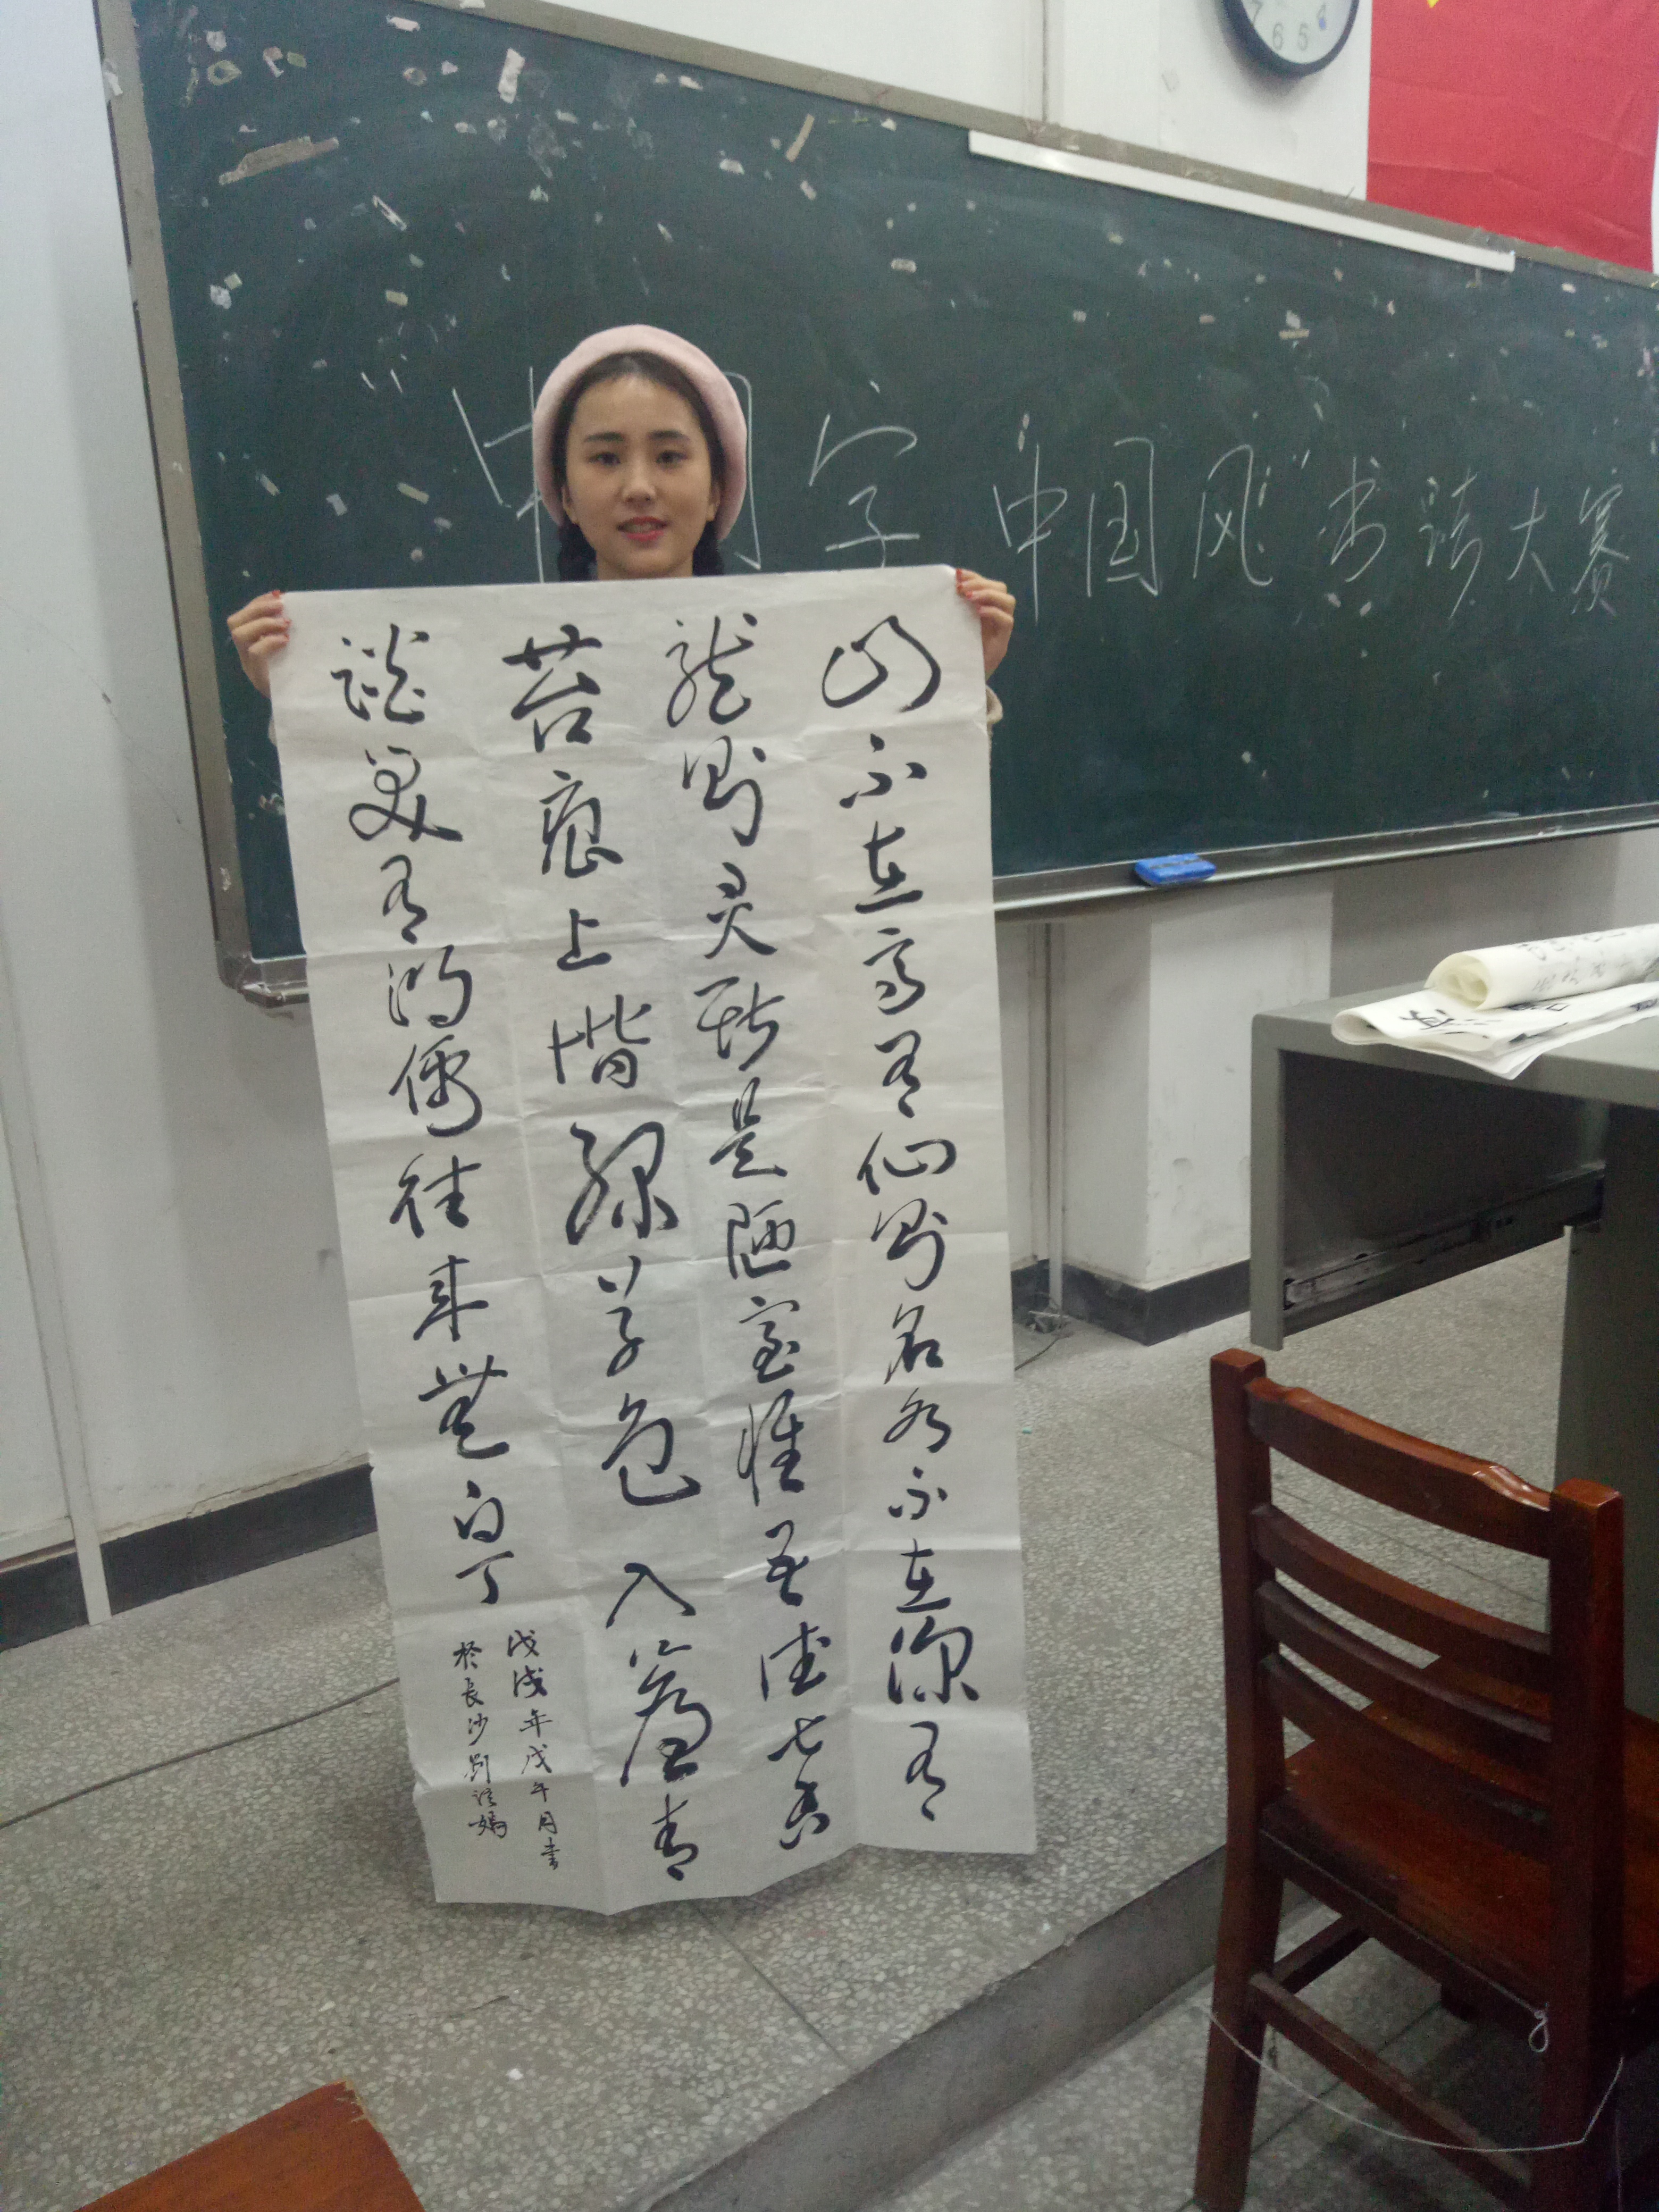 中国字 中国风 书法大赛
山不在高有仙则名水不在深有
龙则灵斯是陋室惟吾德馨
苔痕上階绿草色入簾青
談笑有鸿儒往来無白丁
戊戌年戊午月书
於長沙刘
7 6 5 4